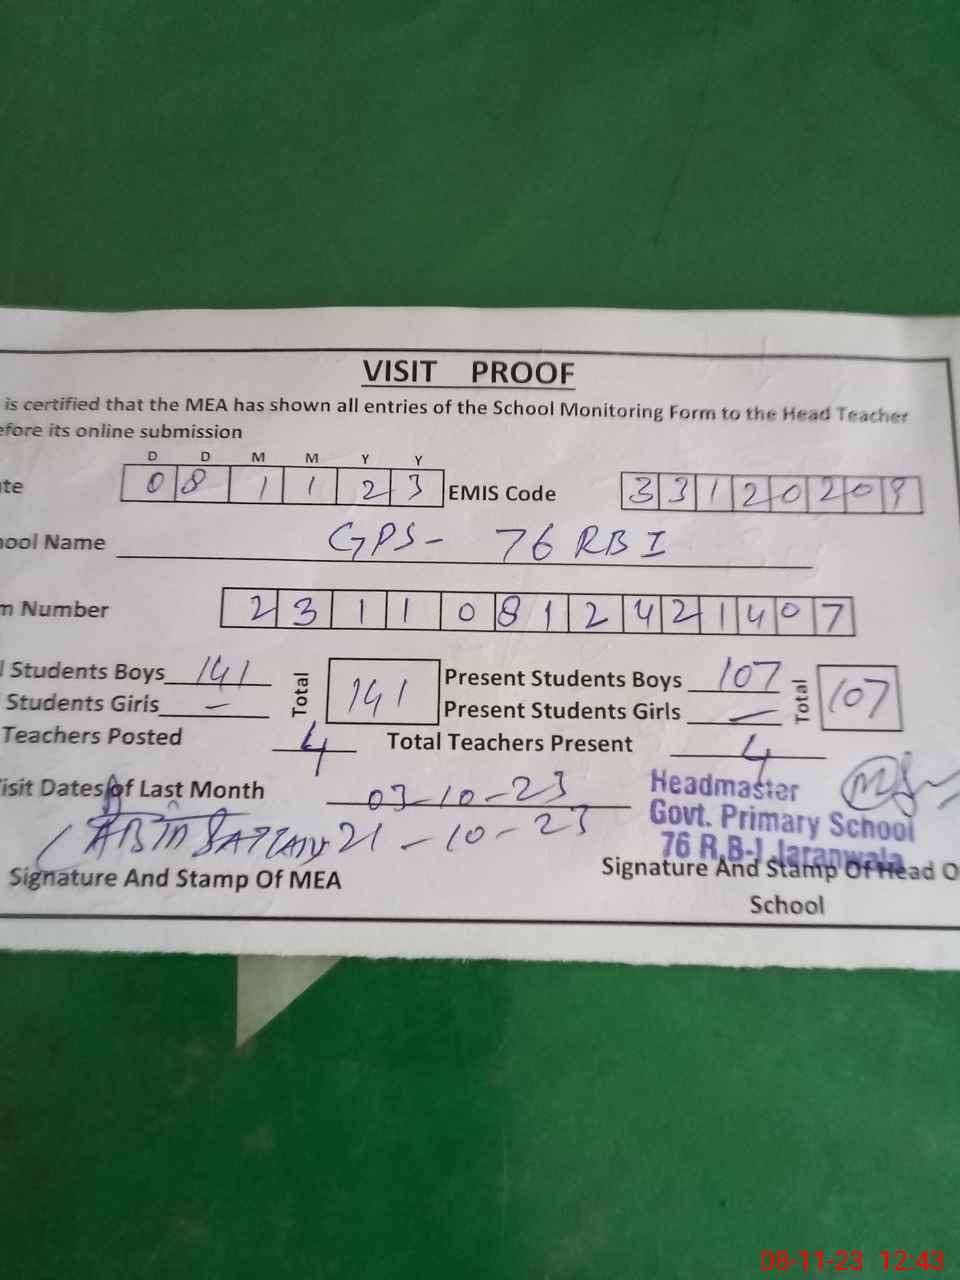 VISIT PROOF
is certified that the MEA has shown all entries of the School Monitoring Form to the Head Teacher
efore its online submission
D D M M Y Y
te 0 8 1 1 2 3 EMIS Code 3 3 1 2 0 2 0 9
ool Name GPS- 76 RB I
m Number 2 3 1 1 0 8 1 2 4 2 1 4 0 7
l Students Boys 141 Total 141 Present Students Boys 107 Total 107
Students Girls - Present Students Girls -
Teachers Posted 4 Total Teachers Present 4
isit Dates of Last Month 03-10-23
21-10-23
Headmaster
Govt. Primary School
76 R.B-I Jaranwala
Signature And Stamp Of MEA
Signature And Stamp Of Head O
School
08-11-23 12:43